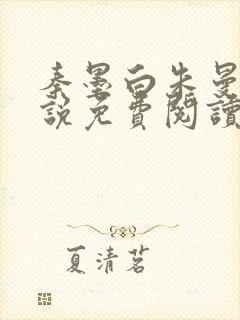 秦墨白朱曼
說免費閱讀
夏清茗